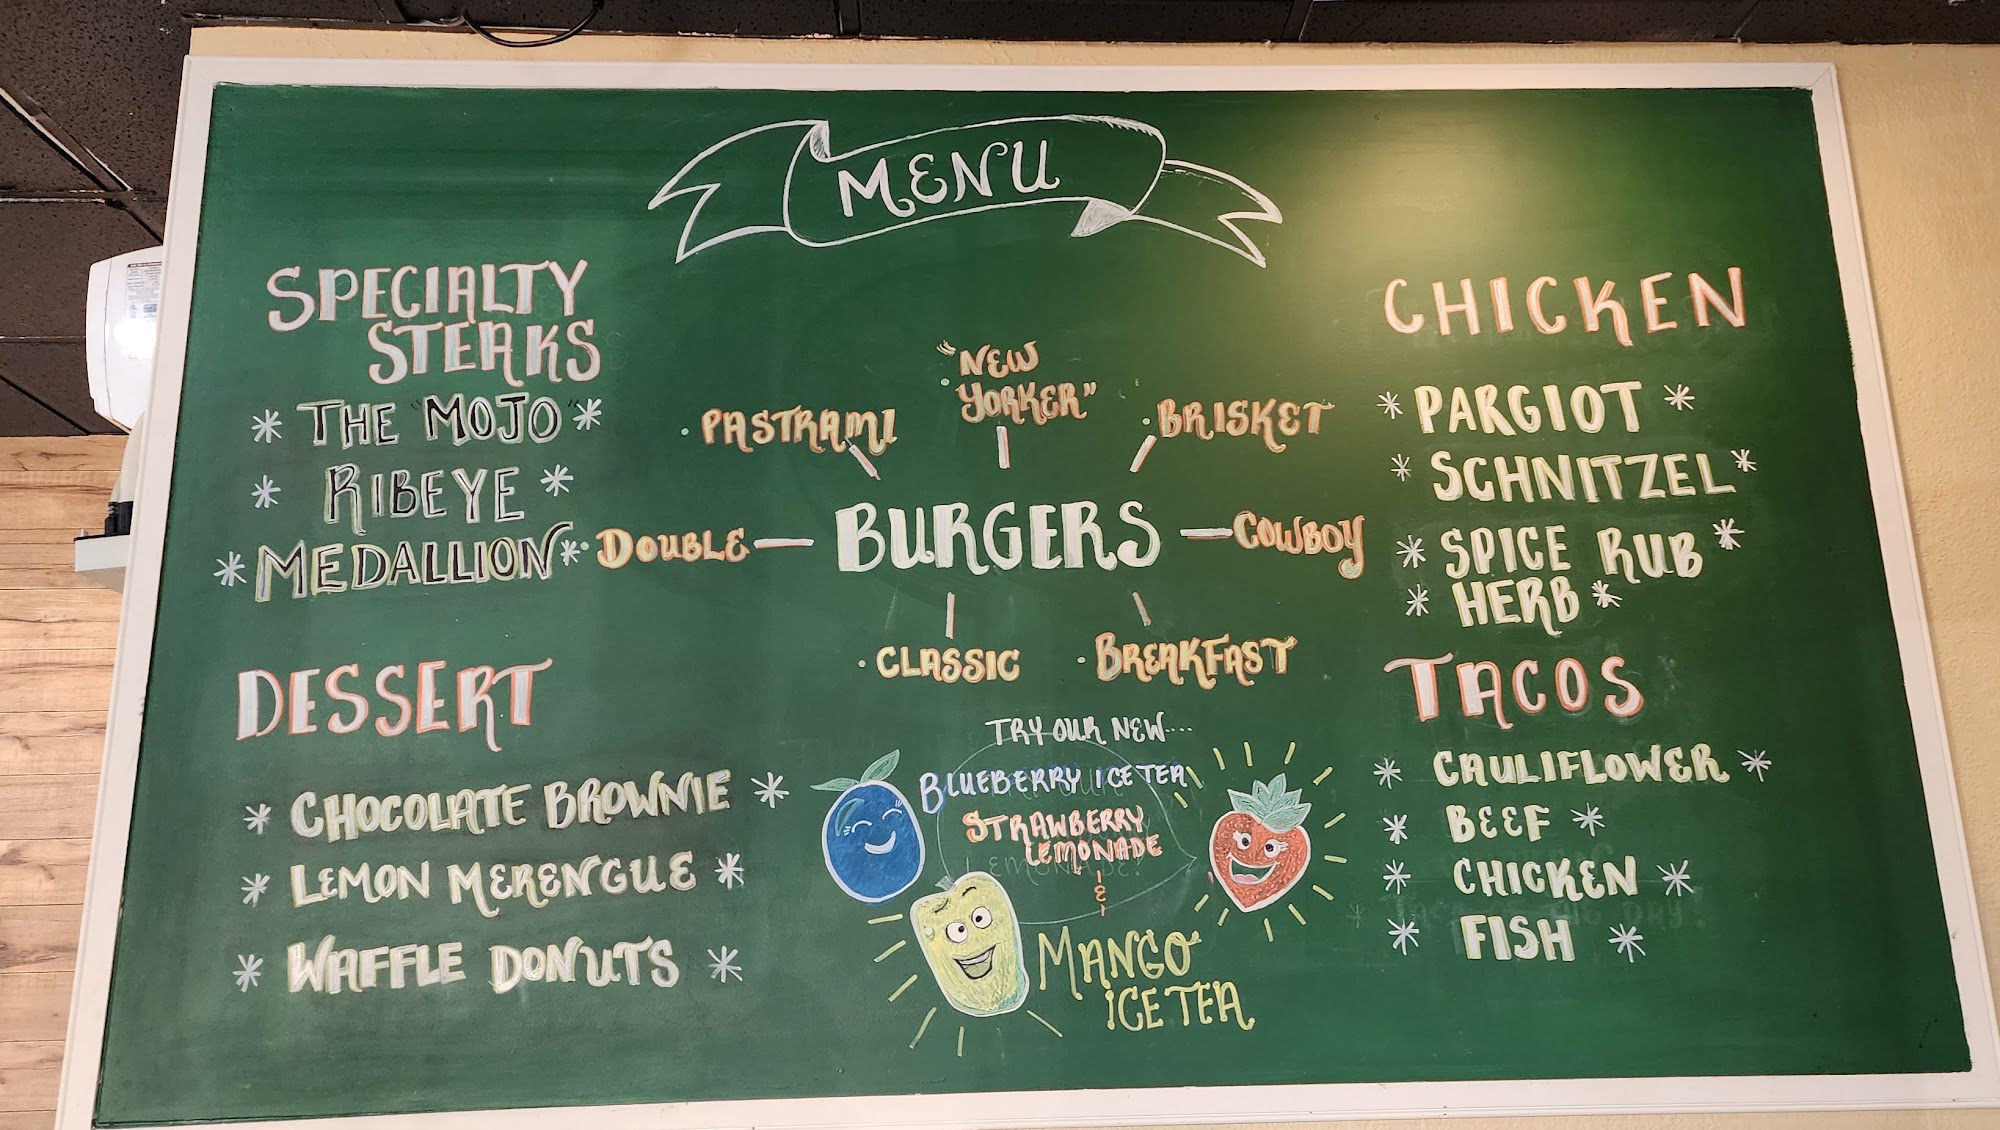 MENU
SPECIALTY
STEAKS
* THE "MOJO" *
* RIBEYE *
* MEDALLION *
DESSERT
* CHOCOLATE BROWNIE *
* LEMON MERENGUE *
* WAFFLE DONUTS *
• PASTRAMI
• "NEW
YORKER"
• BRISKET
• DOUBLE
BURGERS
COWBOY
• CLASSIC
• BREAKFAST
TRY OUR NEW....
BLUEBERRY ICE TEA
STRAWBERRY
LEMONADE
&
MANGO
ICE TEA
CHICKEN
* PARGIOT *
* SCHNITZEL *
* SPICE RUB *
* HERB *
TACOS
* CAULIFLOWER *
* BEEF *
* CHICKEN *
* FISH *